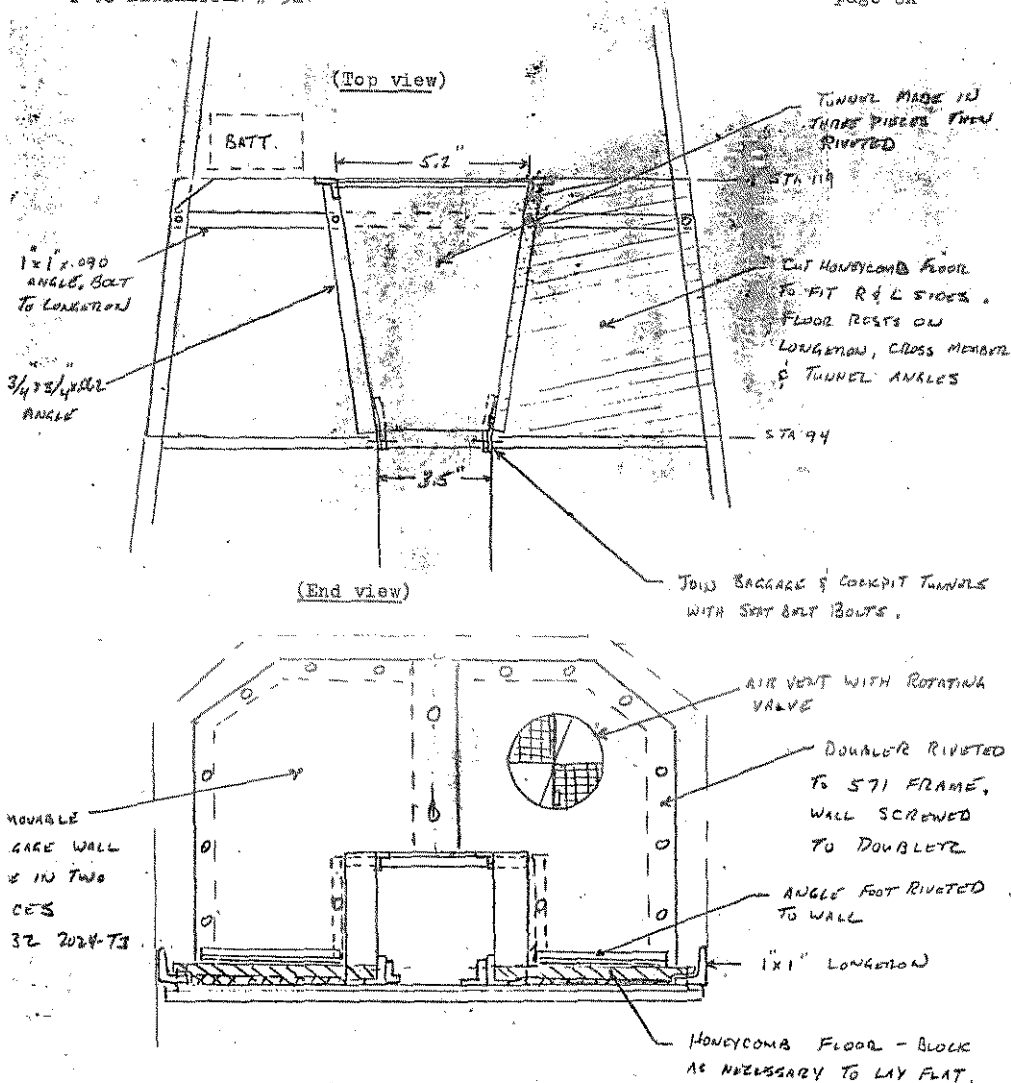 (Top view)
BATT.
5.2"
TUNNEL MADE IN
THREE PIECES THEN
RIVETED
STA 119
1"x1"x.090
ANGLE, BOLT
TO LONGERON
CUT HONEYCOMB FLOOR
TO FIT R & L SIDES.
FLOOR RESTS ON
LONGERON, CROSS MEMBER
& TUNNEL ANGLES
ANGLE
STA 94
3.5"
JOIN BAGGAGE & COCKPIT TUNNELS
WITH SEAT BELT BOLTS.
(End view)
AIR VENT WITH ROTATING
VALVE
DOUBLER RIVETED
TO 571 FRAME,
WALL SCREWED
TO DOUBLER
MOVABLE
GAGE WALL
E IN TWO
CES
32 2024-T3
ANGLE FOOT RIVETED
TO WALL
1"x1" LONGERON
HONEYCOMB FLOOR - BLOCK
AS NECESSARY TO LAY FLAT.